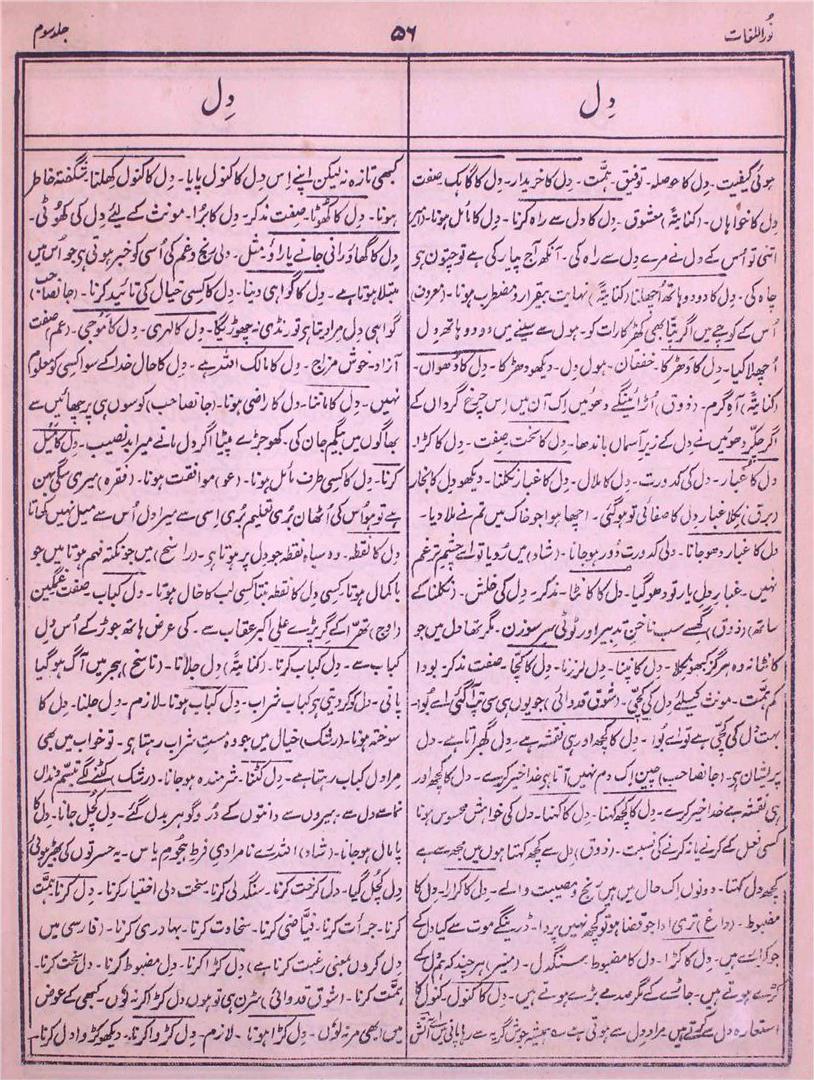 نور اللغات
۵۶
جلد سوم
دِل
دِل
ہوئی کیفیت۔ دِل کا حوصلہ۔ توفیق۔ ہمّت۔ دِل کا خریدار۔ دِل کا گاہک صفت
دِل کا خواہاں۔ (کنایۃً) معشوق۔ دِل کا دل سے راہ کرنا۔ دِل کا مائل ہونا۔
اتنی تو اُس کے دل نے مرے دل سے راہ کی۔ آنکھ آج پیار کی ہے تو چتون ہی
چاہ کی۔ دِل کا دو دو ہاتھ اُچھلنا (کنایۃً) نہایت بیقرار و مضطرب ہونا۔ (معروف)
اُس کے کوچے میں اگر پتّا بھی کھڑکا رات کو۔ ہول سے سینے میں دو دو ہاتھ دِل
اُچھلا کیا۔ دِل کا دھڑکا۔ خفقان۔ ہول دِل۔ دیکھو دھڑکا۔ دِل کا دُھواں۔
(کنایۃً) آہ گرم۔ (ذوق) اُڑائینگے دھوئیں اِک آن میں اِس چرخ گرداں کے
اگر چکّر دھوئیں نے دِل کے زیر آسماں باندھا۔ دِل کا سخت صفت۔ دِل کا کڑا۔
دِل کا غبار۔ دل کی کدورت۔ دِل کا ملال۔ دِل کا غبار نکلنا۔ دیکھو دِل کا بخار
(برق) نکلا غبار دِل کا صفائی تو ہوگئی۔ اچھا ہوا جو خاک میں تم نے ملا دیا۔
دل کا غبار دھو جانا۔ دلی کدورت دُور ہو جانا۔ (شاد) میں رُویا تو اے چشم تر غم
نہیں۔ غبار دِل یار تو دھو گیا۔ دل کا کانٹا۔ مذکر۔ دِل کی خلش۔ (نکلنا کے
ساتھ) (ذوق) گھسے سب ناخن تدبیر اور ٹوٹی سر سوزن۔ مگر تھا دل میں جو
کانٹا نہ وہ ہرگز کبھو نکلا۔ دل کانپنا۔ دِل لرزنا۔ دِل کا کچّا۔ صفت مذکر۔ بودا
کم ہمّت۔ مونث کیلئے دِل کی کچّی۔ (شوق قدوائی) جو یوں ہی سی تپ آگئی اے بُوا۔
بہت دل کی کچّی ہے تو اے بُوا۔ دِل کا کچھ اور ہی نقشہ ہے۔ دِل گھبراتا ہے۔ دل
پریشان ہی۔ (جانصاحب) چین اِک دم نہیں آتا ہی خدا خیر کرے۔ دل کا کچھ اور
ہی نقشہ ہے خدا خیر کرے۔ دل کا کچھ کہنا۔ دِل کا کہنا۔ دل کی خواہش محسوس ہونا
کسی فعل کے کرنے یا نہ کرنے کی نسبت۔ (ذوق) دل سے کچھ کہتا ہوں میں مجھ سے ہے
کچھ دل کہتا۔ دونوں اِک حال میں ہیں رنج و مصیبت والے۔ دِل کا کرارا۔ دل کا
مضبوط۔ (داغ) تری ادا جو قضا ہو تو کچھ نہیں پروا۔ ڈرینگے موت سے کیا دل کے
جو کرارے ہیں۔ دِل کا کڑا۔ دل کا مضبوط۔ سنگدل۔ (منیر) ہرچند کہ تم دل کے
کڑے ہوتے ہیں۔ جانے کے مگر صدمے بڑے ہوتے ہیں۔ دِل کا کنول۔ کنول کا
استعارہ دِل سے کرتے ہیں مراد دِل سے ہوتی ہے
کبھی تازہ نہ لیکن اپنے اِس دِل کا کنول پایا۔ دِل کا کنول کِھلنا۔ شگفتہ خاطر
ہونا۔ دِل کا کھوٹا۔ صفت مذکر۔ دِل کا بُرا۔ مونث کے لیے دِل کی کھوٹی۔
دِل کا گھاؤ رانی جانے یا راؤ۔ مثل۔ دلی رنج و غم کی اُسی کو خبر ہوتی ہی جو اُس میں
مبتلا ہوتا ہے۔ دِل کا گواہی دینا۔ دِل کا کسی خیال کی تائید کرنا۔ (جانصاحب)
گواہی دِل مرا دیتا ہی تو رنڈی نہ چھوڑیگا۔ دِل کا لہری۔ دِل کا موجی۔ (عم) صفت
آزاد۔ خوش مزاج۔ دِل کا مالک اللہ ہے۔ دِل کا حال خدا کے سوا کسی کو معلوم
نہیں۔ دِل کا ماننا۔ دل کا راضی ہونا۔ (جانصاحب) کوسوں ہی پرچھائیں سے
بھاگوں میں بیگم جان کی۔ کھوجڑے پیٹا اگر دل مانے میرا بد نصیب۔ دِل کا میل
کرنا۔ دِل کا کسی طرف مائل ہونا۔ (عو) موافقت ہونا۔ (فقرہ) میری سگی بہن
ہے تو ہو اُس کی اُٹھان بُری تعلیم بُری اِسی سے میرا دل اُس سے میل نہیں کھاتا
دل کا نقطہ۔ وہ سیاہ نقطہ جو دل پر ہوتا ہی۔ (راسخ) میں جو نکتہ فہم ہوتا میں جو
باکمال ہوتا۔ کسی دِل کا نقطہ بنتا کسی لب کا خال ہوتا۔ دِل کباب۔ صفت غمگین
(اوج) تھرّا کے گر پڑے علی اکبر عقاب سے۔ کی عرض ہاتھ جوڑ کے اُس دل
کباب سے۔ دل کباب کرنا۔ (کنایۃً) دل جلانا۔ (ناسخ) ہجر میں آگ ہو گیا
پانی۔ دل کو کر دیتی ہی کباب شراب۔ دِل کباب ہونا۔ لازم۔ دِل جلنا۔ دل کا
سوختہ ہونا۔ (رشک) خیال میں جو وہ مست شراب رہتا ہی۔ تو خواب میں بھی
مرا دل کباب رہتا ہے۔ دل کٹنا۔ شرمندہ ہو جانا۔ (رشک) کٹنے لگے تبسّم دنداں
نما سے دل۔ ہیروں سے دانتوں کے دُر و گوہر بدل گئے۔ دِل کُچل جانا۔ دل کا
پامال ہو جانا۔ (شاد) اللہ رے نامرادی فرط ہجوم یاس۔ یہ حسرتوں کی بھیڑ ہوئی
دِل کُچل گیا۔ دل کرخت کرنا۔ سنگدلی کرنا۔ سخت دلی اختیار کرنا۔ دِل کرنا۔ ہمّت
کرنا۔ جرأت کرنا۔ فیّاضی کرنا۔ سخاوت کرنا۔ بہادری کرنا۔ (فارسی میں
دِل کردن بمعنی رغبت کرنا ہے) دِل کڑا کرنا۔ دِل مضبوط کرنا۔ دِل سخت کرنا۔
ہمّت کرنا۔ (شوق قدوائی) سَرن ہی تو ہوں دِل کڑا کر نہ لُوں۔ کبھی کے عوض
میں ابھی مر نہ لُوں۔ دِل کڑا ہونا۔ لازم۔ دِل کڑوا کرنا۔ دیکھو کڑوا دل کرنا۔